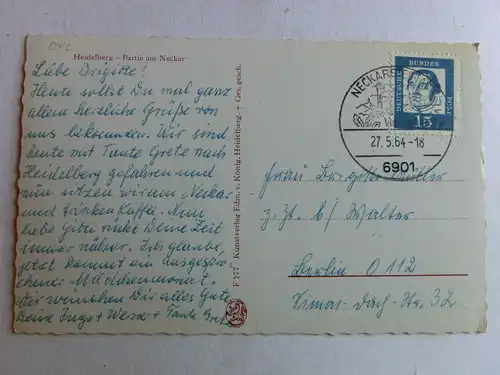 Heidelberg – Partie am Neckar
Liebe Brigitte!
Heute sollst Du mal ganz
allein herzliche Grüße von
uns bekommen. Wir sind
heute mit Tante Grete nach
Heidelberg gefahren und
nun sitzen wir am Neckar
und trinken Kaffee. Nun
liebe Gitti rückt Deine Zeit
immer näher. Ich glaube,
jetzt kommt ein ausgespro-
chener Mädchenmonat.
Wir wünschen Dir alles Gute
Deine Inga + Werner + Tante Grete
F 177 Kunstverlag Edm. v. König, Heidelberg. + Ges. gesch.
DEUTSCHE BUNDES POST
15
NECKARS
27.5.64-18
6901
Frau Brigitte Müller
z. Zt. b/ Walter
Berlin O 112
Simon-Dach-Str. 32